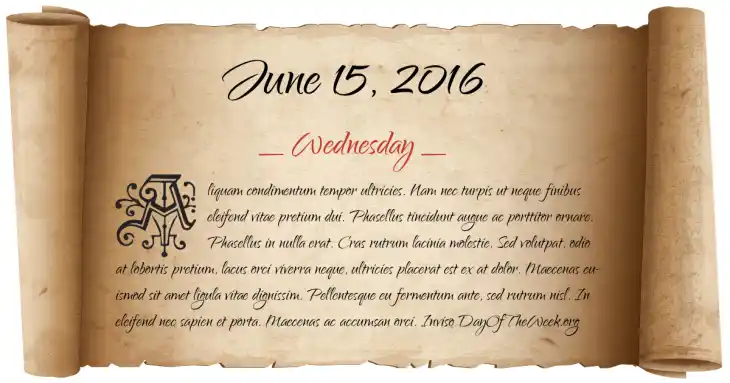 June 15, 2016
_ Wednesday _
Aliquam condimentum tempor ultricies. Nam nec turpis ut neque finibus
eleifend vitae pretium dui. Phasellus tincidunt augue ac porttitor ornare.
Phasellus in nulla erat. Cras rutrum lacinia molestie. Sed volutpat, odio
at lobortis pretium, lacus orci viverra neque, ultricies placerat est ex at dolor. Maecenas eu-
ismod sit amet ligula vitae dignissim. Pellentesque eu fermentum ante, sed rutrum nisl. In
eleifend nec sapien et porta. Maecenas ac accumsan orci. Invisq DayOfTheWeek.org